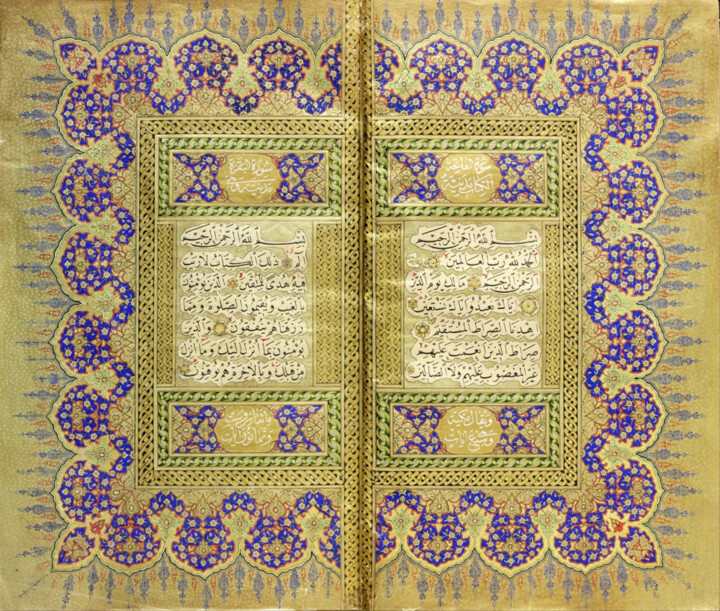 سورة الفاتحة
بِسْمِ اللّٰهِ الرَّحْمٰنِ الرَّحِيمِ
اَلْحَمْدُ لِلّٰهِ رَبِّ الْعَالَمِينَ
الرَّحْمٰنِ الرَّحِيمِ مَالِكِ يَوْمِ الدِّينِ
اِيَّاكَ نَعْبُدُ وَاِيَّاكَ نَسْتَعِينُ
اِهْدِنَا الصِّرَاطَ الْمُسْتَقِيمَ
صِرَاطَ الَّذِينَ اَنْعَمْتَ عَلَيْهِمْ
غَيْرِ الْمَغْضُوبِ عَلَيْهِمْ وَلَا الضَّالِّينَ
سورة البقرة
مدنية
بِسْمِ اللّٰهِ الرَّحْمٰنِ الرَّحِيمِ
الٓمٓ ذٰلِكَ الْكِتَابُ لَا رَيْبَ
فِيهِ هُدًى لِلْمُتَّقِينَ اَلَّذِينَ يُؤْمِنُونَ
بِالْغَيْبِ وَيُقِيمُونَ الصَّلٰوةَ وَمِمَّا
رَزَقْنَاهُمْ يُنْفِقُونَ وَالَّذِينَ
يُؤْمِنُونَ بِمَا اُنْزِلَ اِلَيْكَ وَمَا اُنْزِلَ
مِنْ قَبْلِكَ وَبِالْاٰخِرَةِ هُمْ يُوقِنُونَ